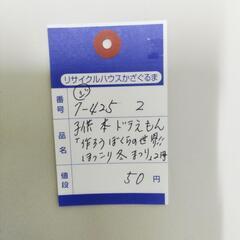 リサイクルハウスかざぐるま
番号 7-425 2
品名 子供本 ドラえもん
「作ろうぼくらの世界!!
ほっこり冬まつり」2冊
値段 50円